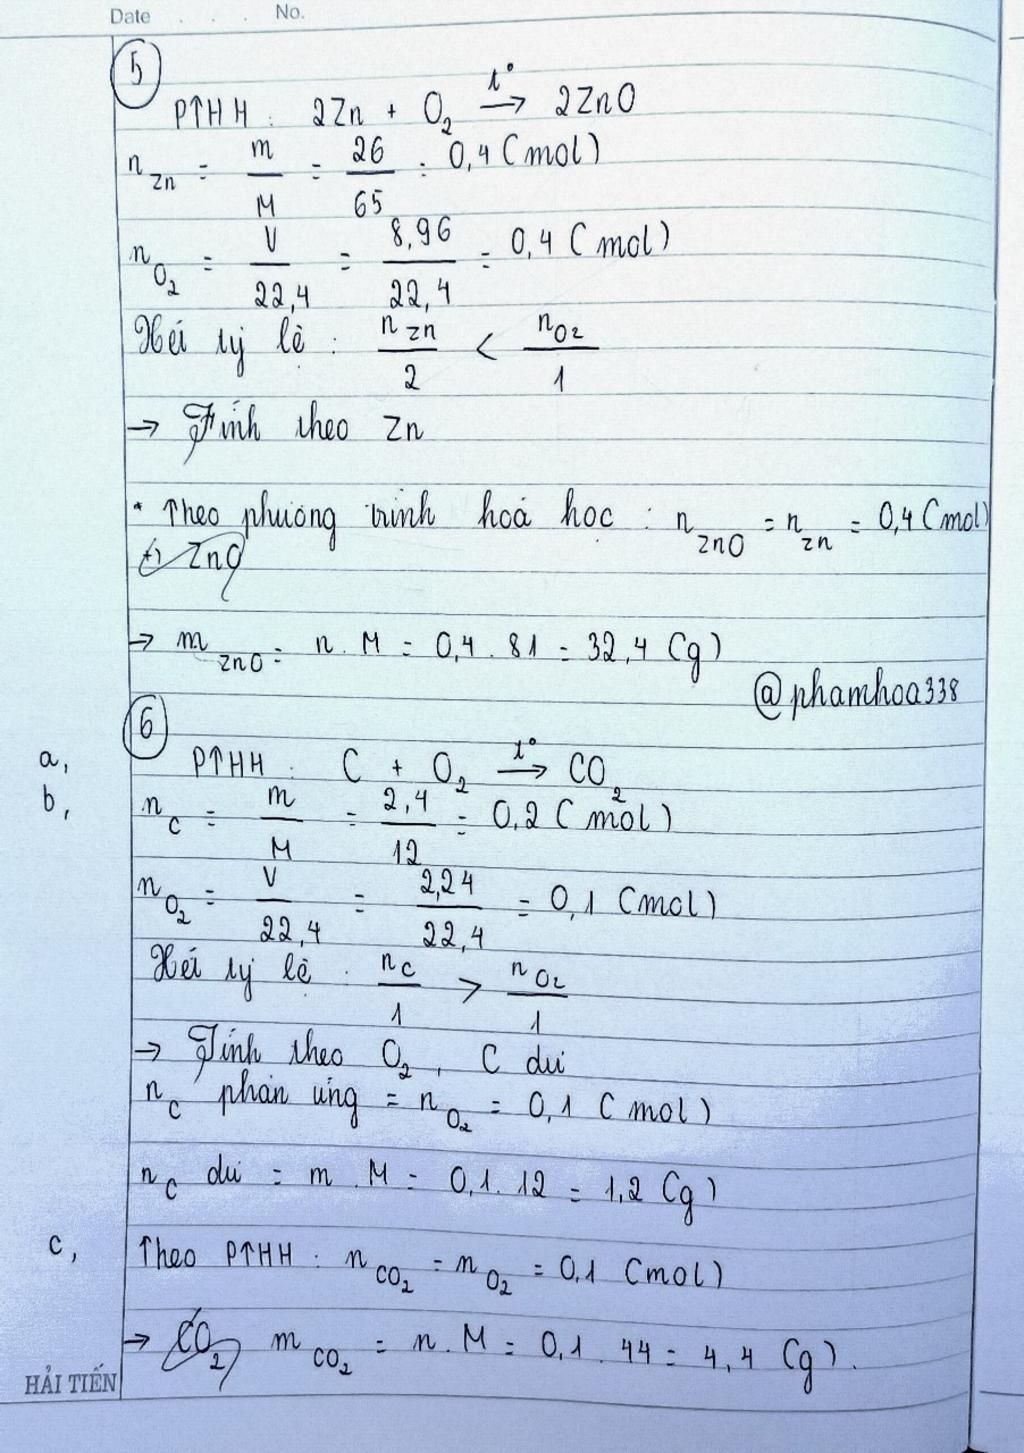 Date . . . No.
5
PTHH : 2Zn + O₂ t°→ 2ZnO
n Zn = m/M = 26/65 = 0,4 (mol)
n O₂ = V/22,4 = 8,96/22,4 = 0,4 (mol)
Xét tỷ lệ : n Zn/2 < n O₂/1
→ Tính theo Zn
* Theo phương trình hoá học : n ZnO = n Zn = 0,4 (mol)
ZnO
→ m ZnO = n . M = 0,4 . 81 = 32,4 (g)
@phamhoa338
6
a, PTHH : C + O₂ t°→ CO₂
b, n C = m/M = 2,4/12 = 0,2 (mol)
n O₂ = V/22,4 = 2,24/22,4 = 0,1 (mol)
Xét tỷ lệ : n C/1 > n O₂/1
→ Tính theo O₂ , C dư
n C phản ứng = n O₂ = 0,1 (mol)
n C dư = m . M = 0,1 . 12 = 1,2 (g)
c, Theo PTHH : n CO₂ = n O₂ = 0,1 (mol)
→ CO₂ m CO₂ = n . M = 0,1 . 44 = 4,4 (g) .
HẢI TIẾN